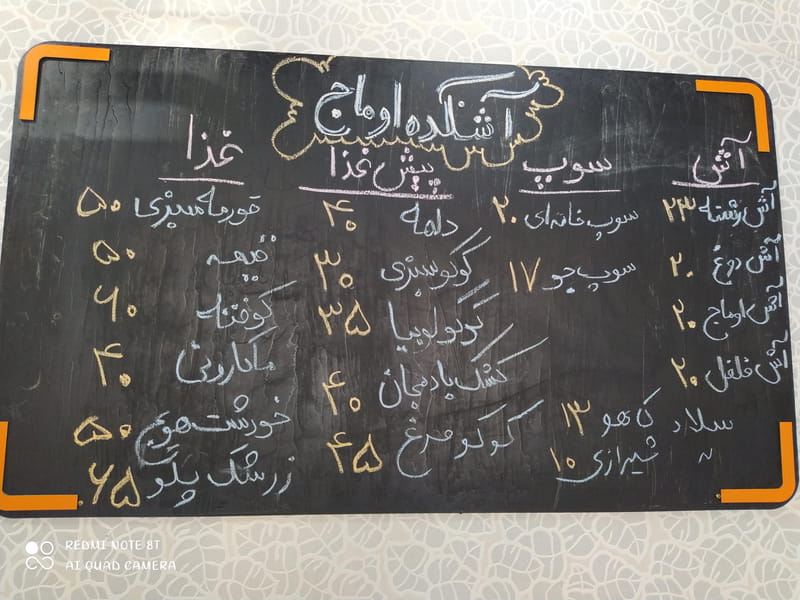 آشکده اوماج
آش
آش رشته ۲۳
آش دوغ ۲۰
آش اوماج ۲۰
آش فلفل ۲۰
سوپ
سوپ خامه‌ای ۲۰
سوپ جو ۱۷
سلاد کاهو ۱۳
〃 شیرازی ۱۰
پیش غذا
دلمه ۴۰
کوکو سبزی ۳۰
کوکو لوبیا ۳۵
کشک بادمجان ۴۰
کوکو مرغ ۴۵
غذا
قورمه سبزی ۵۰
قیمه ۵۰
کوفته ۶۰
ماکارونی ۴۰
خورشت هویج ۵۰
زرشک پلو ۶۵
REDMI NOTE 8T
AI QUAD CAMERA